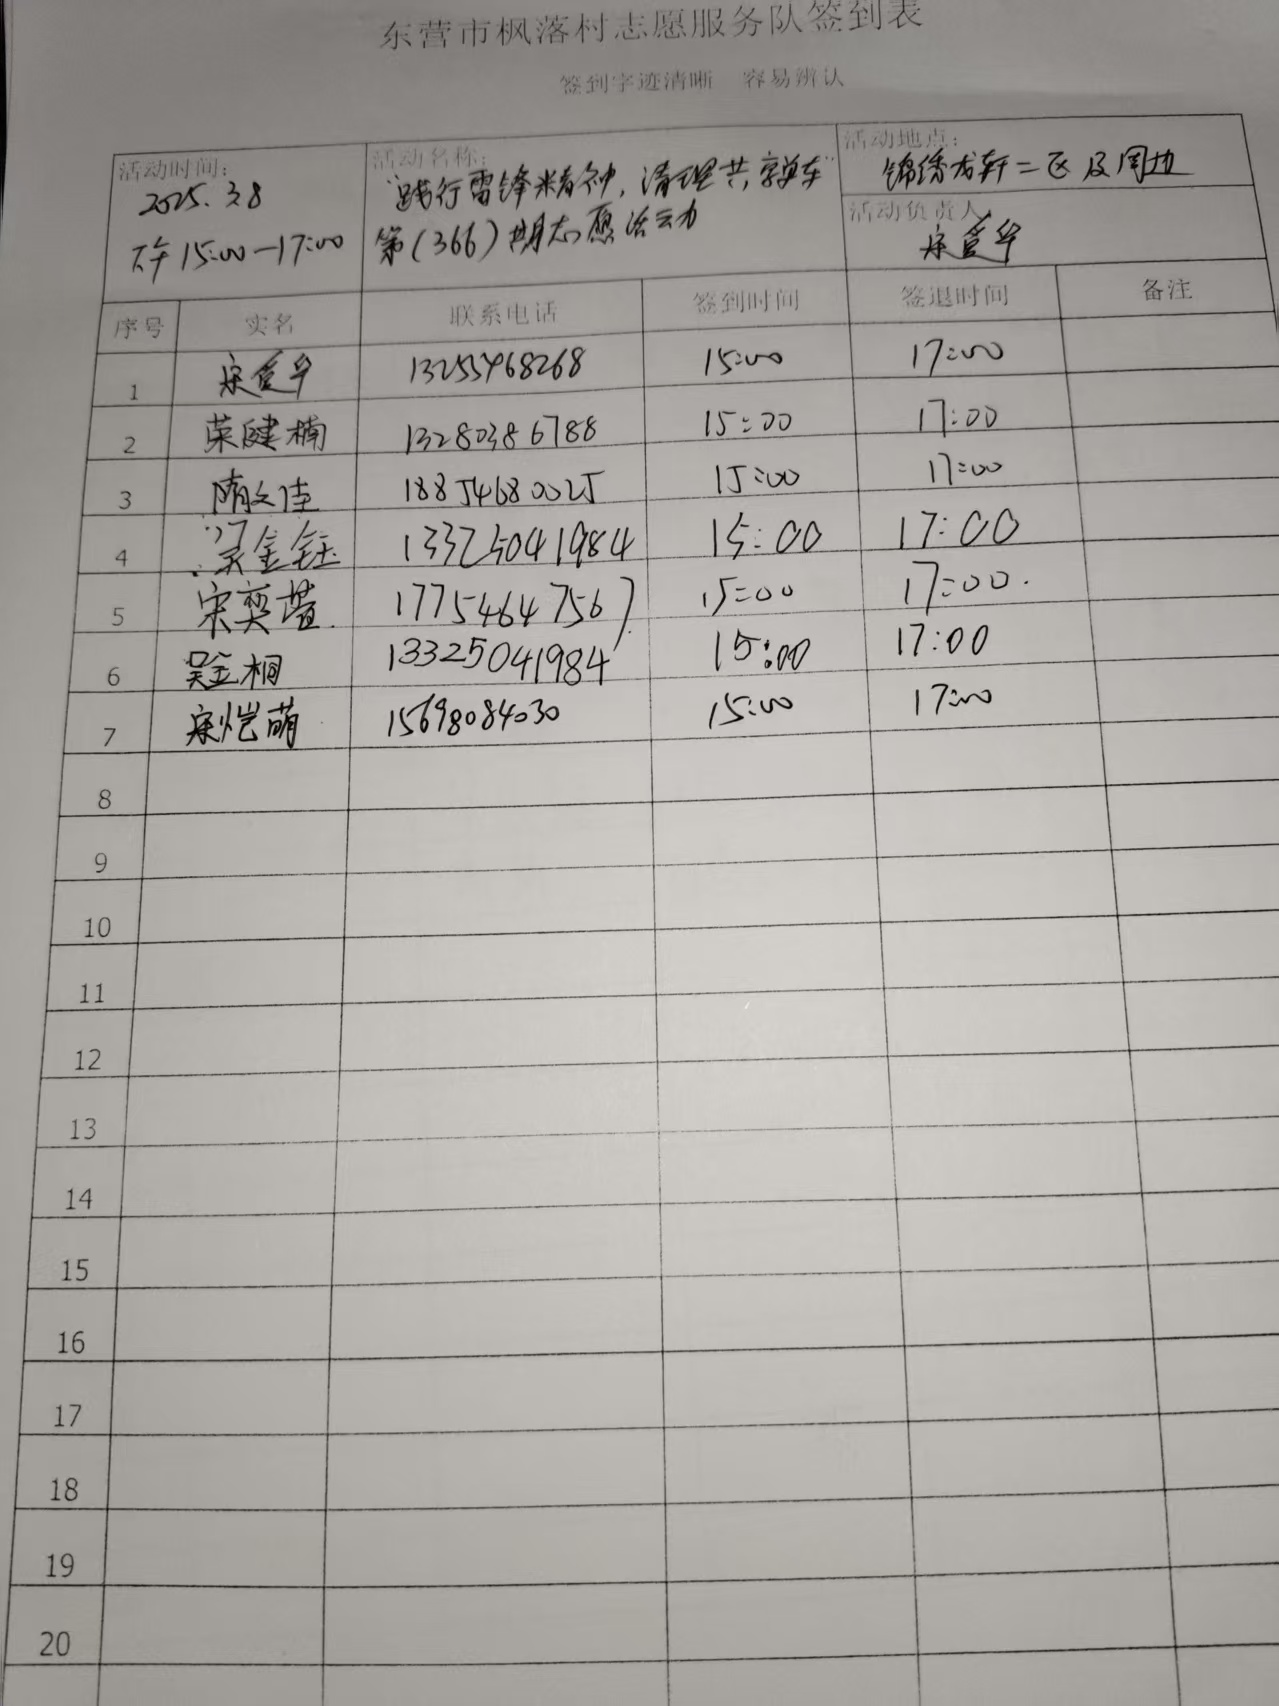 东营市枫落村志愿服务队签到表
签到字迹清晰 容易辨认
活动时间: 活动名称: 活动地点:
2025.3.8 "践行雷锋精神,清理共享单车" 锦绣龙轩二区及周边
下午15:00—17:00 第(366)期志愿活动 活动负责人
宋爱华
序号 实名 联系电话 签到时间 签退时间 备注
1 宋爱华 13255468268 15:00 17:00
2 荣健楠 13280386788 15:00 17:00
3 隋文佳 18854680025 15:00 17:00
4 金钰 13325041984 15:00 17:00
5 宋奕萱 17754647567 15:00 17:00.
6 吴金桐 13325041984 15:00 17:00
7 宋恺萌 15698084030 15:00 17:00
8
9
10
11
12
13
14
15
16
17
18
19
20